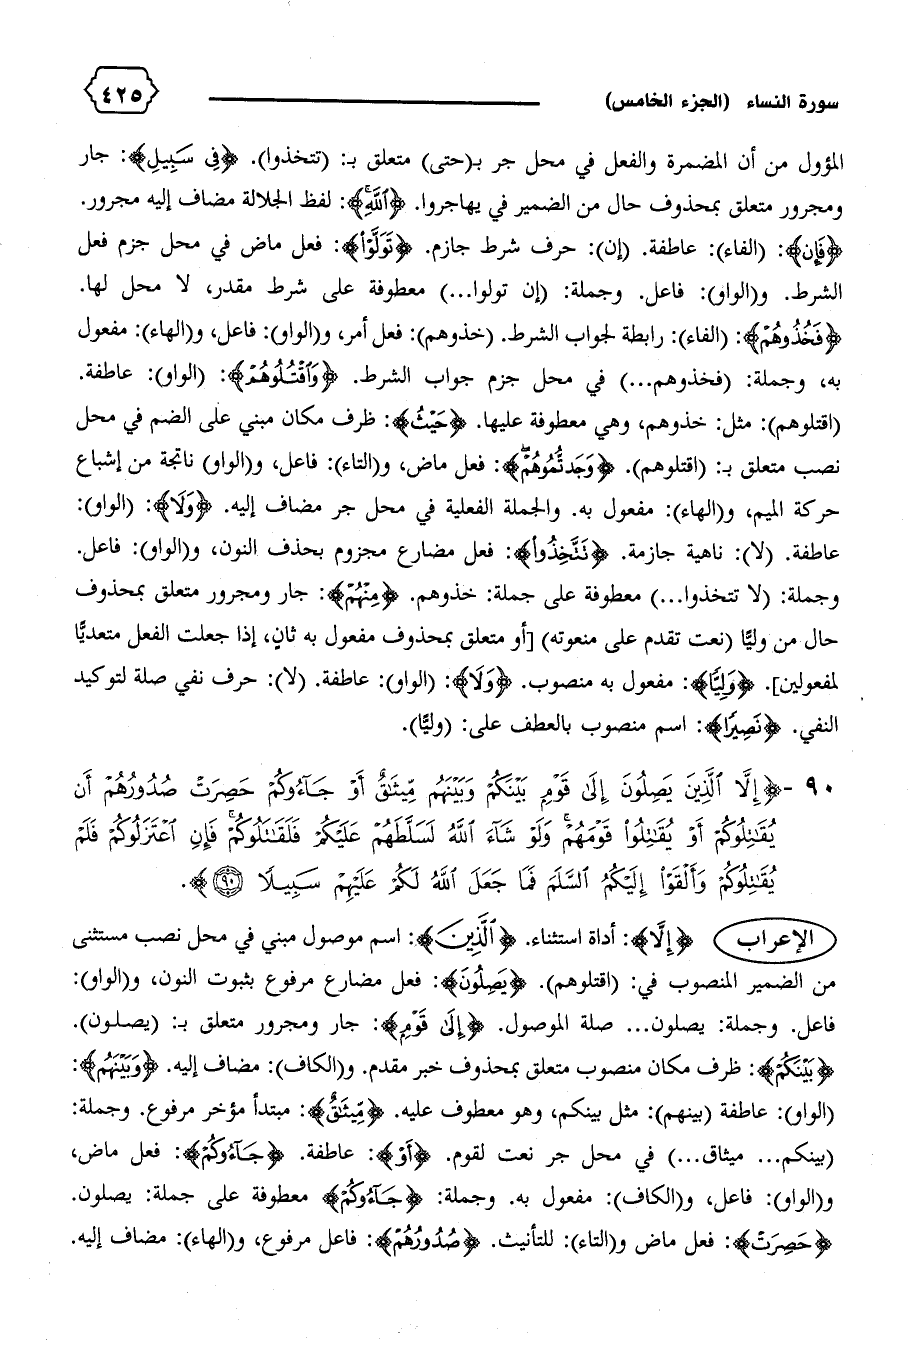 سورة النساء (الجزء الخامس) ٤٢٥
المؤول من أن المضمرة والفعل في محل جر بـ(حتى) متعلق بـ: (تتخذوا). ﴿فِي سَبِيلِ﴾: جار
ومجرور متعلق بمحذوف حال من الضمير في يهاجروا. ﴿ٱللَّهِ﴾: لفظ الجلالة مضاف إليه مجرور.
﴿فَإِن﴾: (الفاء): عاطفة. (إن): حرف شرط جازم. ﴿تَوَلَّوۡاْ﴾: فعل ماض في محل جزم فعل
الشرط. و(الواو): فاعل. وجملة: (إن تولوا...) معطوفة على شرط مقدر، لا محل لها.
﴿فَخُذُوهُمۡ﴾: (الفاء): رابطة لجواب الشرط. (خذوهم): فعل أمر، و(الواو): فاعل، و(الهاء): مفعول
به، وجملة: (فخذوهم...) في محل جزم جواب الشرط. ﴿وَٱقۡتُلُوهُمۡ﴾: (الواو): عاطفة.
(اقتلوهم): مثل: خذوهم، وهي معطوفة عليها. ﴿حَيۡثُ﴾: ظرف مكان مبني على الضم في محل
نصب متعلق بـ: (اقتلوهم). ﴿وَجَدتُّمُوهُمۡۖ﴾: فعل ماض، و(التاء): فاعل، و(الواو) ناتجة من إشباع
حركة الميم، و(الهاء): مفعول به. والجملة الفعلية في محل جر مضاف إليه. ﴿وَلَا﴾: (الواو):
عاطفة. (لا): ناهية جازمة. ﴿نَتَّخِذُواْ﴾: فعل مضارع مجزوم بحذف النون، و(الواو): فاعل.
وجملة: (لا تتخذوا...) معطوفة على جملة: خذوهم. ﴿مِنۡهُمۡ﴾: جار ومجرور متعلق بمحذوف
حال من وليًّا (نعت تقدم على منعوته) [أو متعلق بمحذوف مفعول به ثانٍ، إذا جعلت الفعل متعديًّا
لمفعولين]. ﴿وَلِيًّا﴾: مفعول به منصوب. ﴿وَلَا﴾: (الواو): عاطفة. (لا): حرف نفي صلة لتوكيد
النفي. ﴿نَصِيرًا﴾: اسم منصوب بالعطف على: (وليًّا).
٩٠ -﴿إِلَّا ٱلَّذِينَ يَصِلُونَ إِلَىٰ قَوۡمِۭ بَيۡنَكُمۡ وَبَيۡنَهُم مِّيثَٰقٌ أَوۡ جَآءُوكُمۡ حَصِرَتۡ صُدُورُهُمۡ أَن
يُقَٰتِلُوكُمۡ أَوۡ يُقَٰتِلُواْ قَوۡمَهُمۡۚ وَلَوۡ شَآءَ ٱللَّهُ لَسَلَّطَهُمۡ عَلَيۡكُمۡ فَلَقَٰتَلُوكُمۡۚ فَإِنِ ٱعۡتَزَلُوكُمۡ فَلَمۡ
يُقَٰتِلُوكُمۡ وَأَلۡقَوۡاْ إِلَيۡكُمُ ٱلسَّلَمَ فَمَا جَعَلَ ٱللَّهُ لَكُمۡ عَلَيۡهِمۡ سَبِيلًا ٩٠﴾.
الإعراب ﴿إِلَّا﴾: أداة استثناء. ﴿ٱلَّذِينَ﴾: اسم موصول مبني في محل نصب مستثنى
من الضمير المنصوب في: (اقتلوهم). ﴿يَصِلُونَ﴾: فعل مضارع مرفوع بثبوت النون، و(الواو):
فاعل. وجملة: يصلون... صلة الموصول. ﴿إِلَىٰ قَوۡمِۭ﴾: جار ومجرور متعلق بـ: (يصلون).
﴿بَيۡنَكُمۡ﴾: ظرف مكان منصوب متعلق بمحذوف خبر مقدم. و(الكاف): مضاف إليه. ﴿وَبَيۡنَهُم﴾:
(الواو): عاطفة (بينهم): مثل بينكم، وهو معطوف عليه. ﴿مِّيثَٰقٌ﴾: مبتدأ مؤخر مرفوع. وجملة:
(بينكم... ميثاق...) في محل جر نعت لقوم. ﴿أَوۡ﴾: عاطفة. ﴿جَآءُوكُمۡ﴾: فعل ماض،
و(الواو): فاعل، و(الكاف): مفعول به. وجملة: ﴿جَآءُوكُمۡ﴾ معطوفة على جملة: يصلون.
﴿حَصِرَتۡ﴾: فعل ماض و(التاء): للتأنيث. ﴿صُدُورُهُمۡ﴾: فاعل مرفوع، و(الهاء): مضاف إليه.